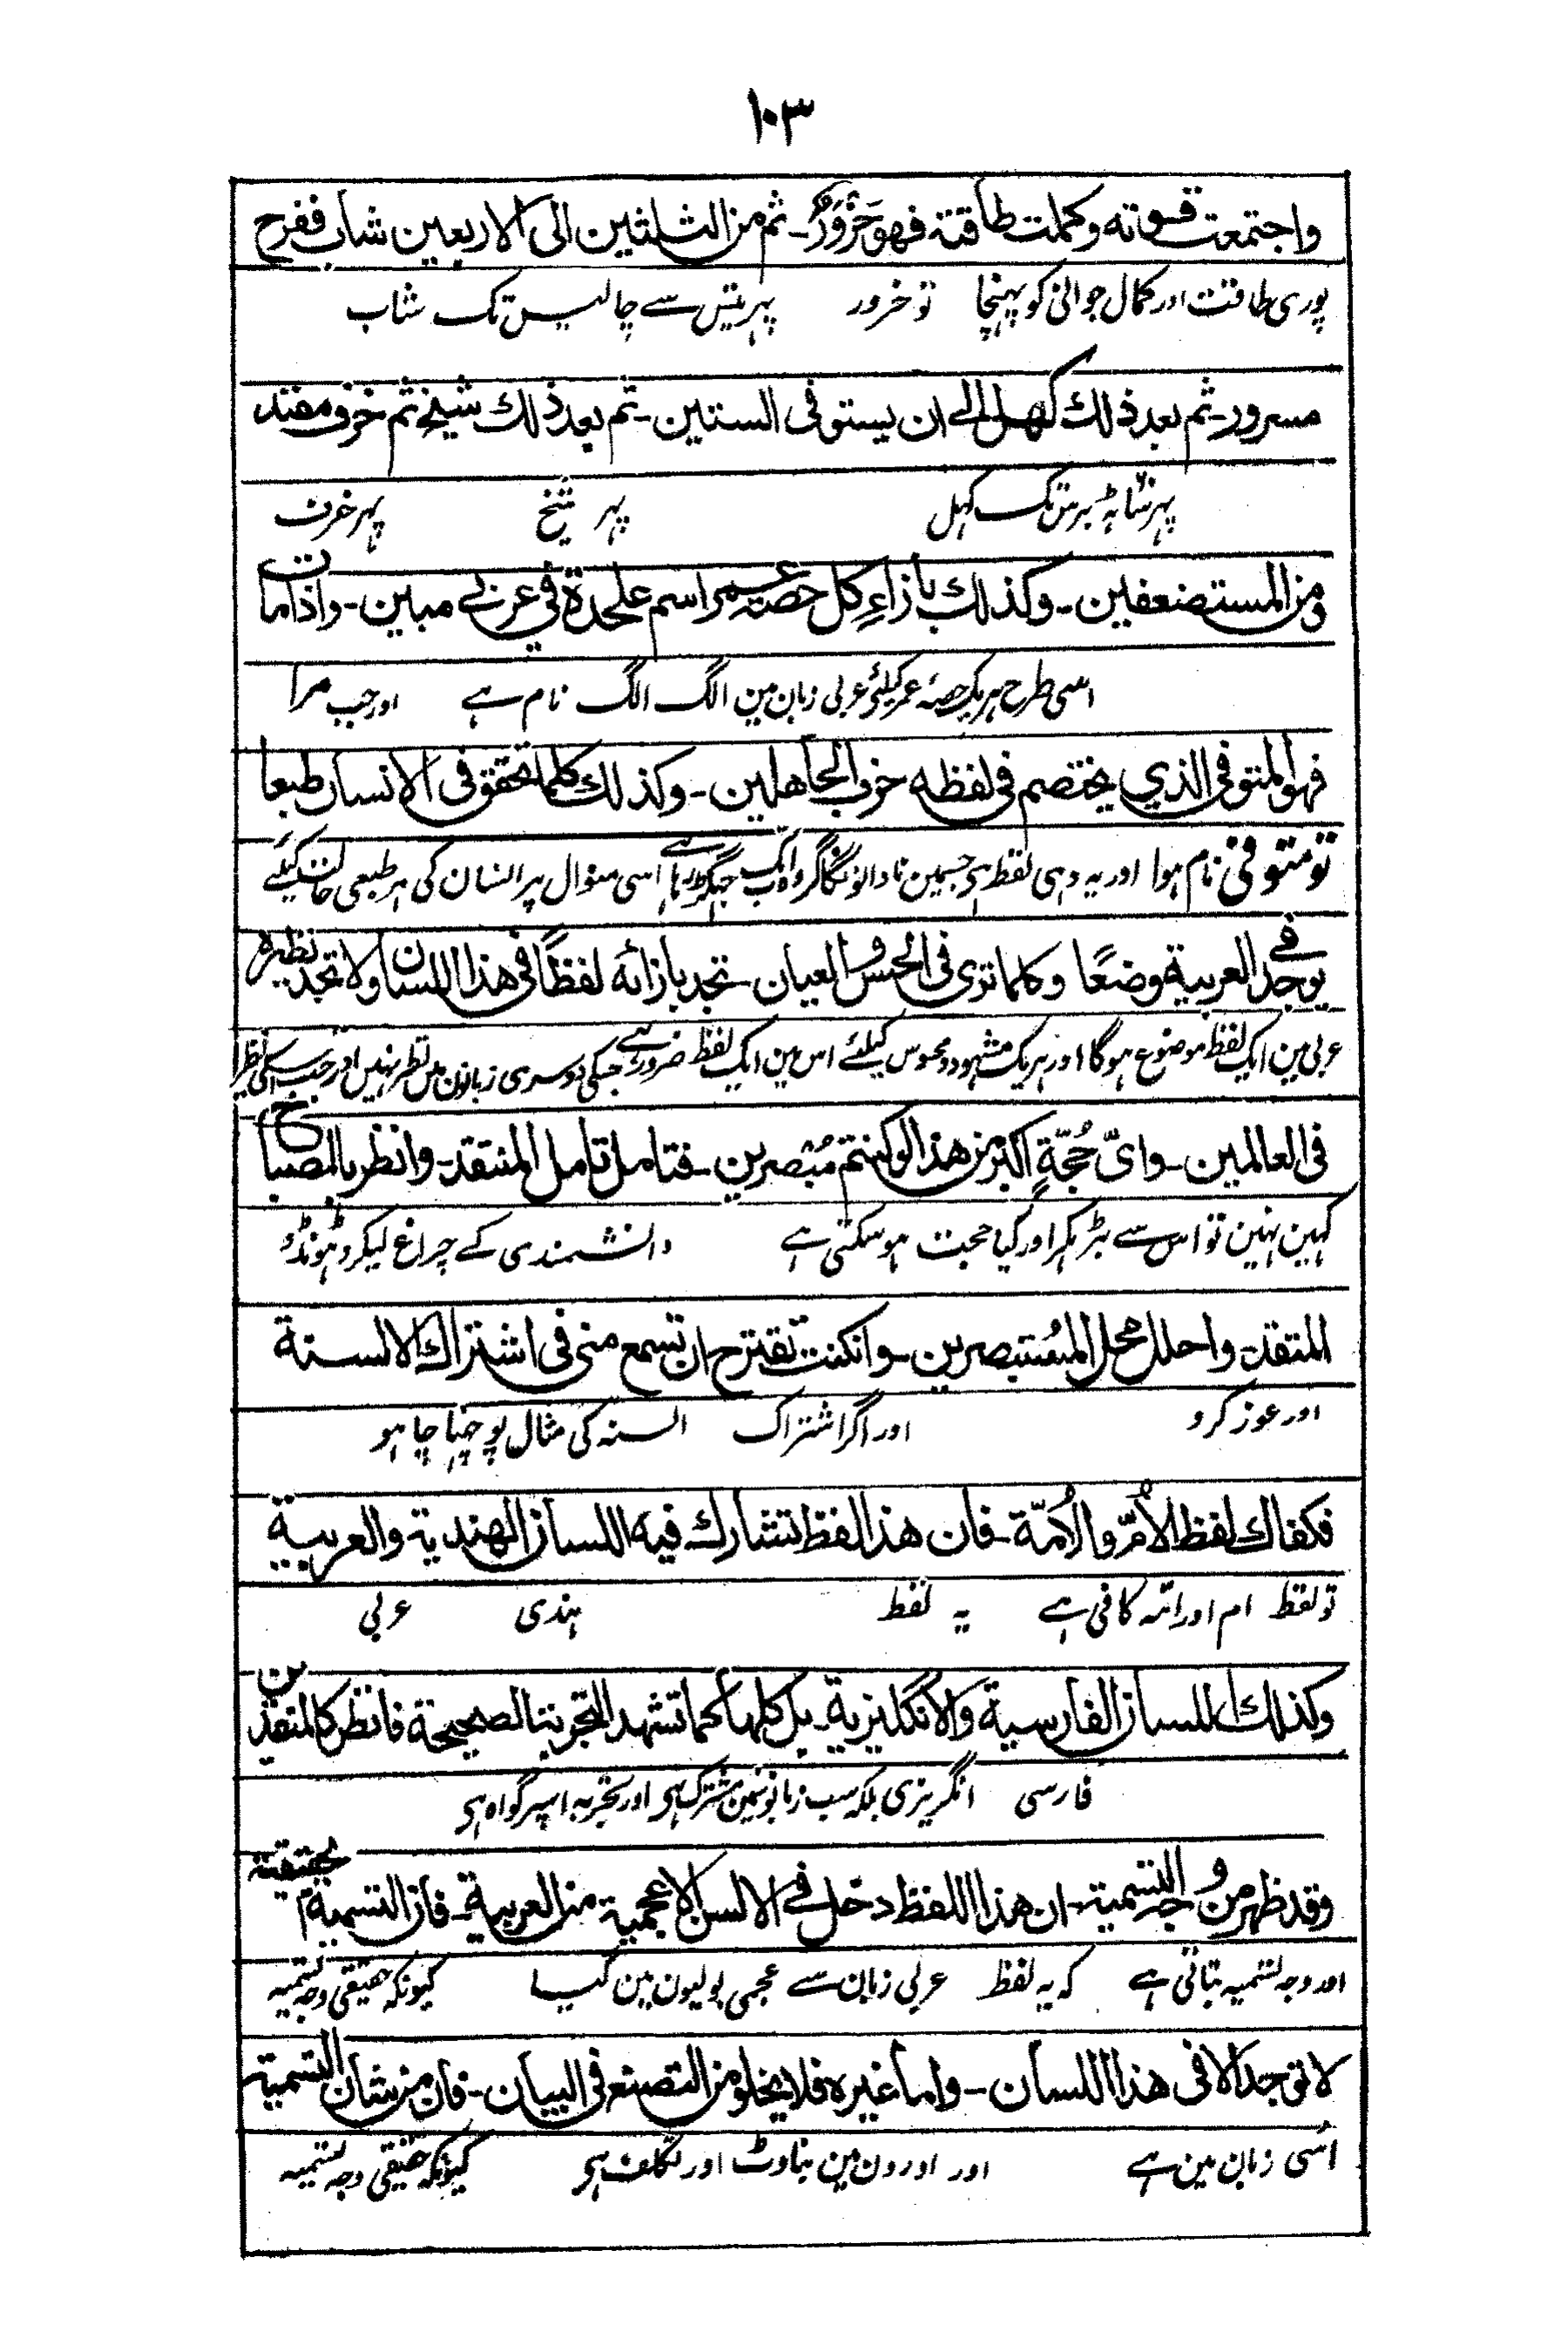 ۱۰۳
واجتمعت قوته وكملت طاقته فهو حَزْوَرٌ۔ ثم من الثلثين الى الاربعين شاب ففرح
پوری طاقت اور کمال جوانی کو پہنچا تو خرور پہر تیس سے چالیس تک شاب
مسرور۔ ثم بعد ذلك كهل الے ان يستوفى الستين۔ ثم بعد ذلك شيخ ثم خرف مفند
پہر ساٹہہ برس تک کہل پہر شیخ پہر خرف
ومن المستضعفين۔ وكذلك بازاءِ كل حصة عمر اسم علحدة في عربے مبين۔ واذا مات
اسی طرح ہریک حصۂ عمر کیلئے عربی زبان مین الگ الگ نام ہے اور جب مرا
فهو المتوفى الذي يختصم فى لفظه حزب الجاهلين۔ وكذلك كلما تحقق فى الانسان طبعا
تو متوفی نام ہوا اور یہ وہی لفظ ہے جسمین نادانونکا گروہ اب تک جہگڑ رہا ہے اسی منوال پر انسان کی ہر طبعی حالت کیلئے
يوجد فے العربية وضعًا وكلما ترى فى الحس والعيان۔ تجد بازائه لفظًا فى هذا اللسان ولا تجد نظيره
عربی مین ایک لفظ موضوع ہوگا اور ہریک مشہود و محسوس کیلئے اس مین ایک لفظ ضرور ہے جسکی دوسری زبانون مین نظیر نہین اور جب اسکی نظیر
فى العالمين۔ واىّ حُجّةٍ اكبر من هذا لو كنتم مُبْصرين۔ فتامل تامل المنتقد۔ وانظر بالمصباح
کہین نہین تو اس سے بڑہکر اور کیا حجت ہو سکتی ہے دانشمندی کے چراغ لیکر ڈہونڈو
المتقد۔ واحلل محل المُستبصرين۔ وان كنت تقترح ان تسمع منى فى اشتراك الالسنة
اور غور کرو اور اگر اشتراک السنہ کی مثال پوچہنا چاہو
فكفاك لفظ الأمّ والاُمّة۔ فان هذا لفظ تتشارك فيه اللسان الهندية والعربية
تو لفظ ام اور امّہ کافی ہے یہ لفظ ہندی عربی
وكذلك اللسان الفارسية والانگليزية۔ بل كلها كما تشهد التجربة الصحيحة فانظر كالمنتقدين
فارسی انگریزی بلکہ سب زبانونمین مشترک ہے اور تجربہ اسپر گواہ ہے
وقد ظهر من وجه التسمية۔ ان هذا اللفظ دخل فے الالسن الاعجمية من العربية۔ فان التسمية بحقيقة
اور وجہ تسمیہ بتاتی ہے کہ یہ لفظ عربی زبان سے عجمی بولیون مین گیا کیونکہ حقیقی وجہ تسمیہ
لا توجد الا فى هذا اللسان۔ واما غيره فلا يخلو من التصنع فى البيان۔ فان من شان التسمية
اسی زبان مین ہے اور اورون مین بناوٹ اور تکلف ہے کیونکہ حقیقی وجہ تسمیہ